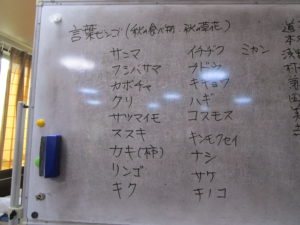 言葉ビンゴ(秋の食べ物 秋の草花)
サンマ
フジバカマ
カボチャ
クリ
サツマイモ
ススキ
カキ(柿)
リンゴ
キク
イチヂク ミカン
ブドウ
キキョウ
ハギ
コスモス
キンモクセイ
ナシ
サケ
キノコ